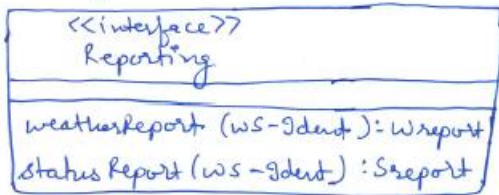 <<interface>>
Reporting
weatherReport (WS-Ident): Wreport
status Report (WS-Ident) : Sreport